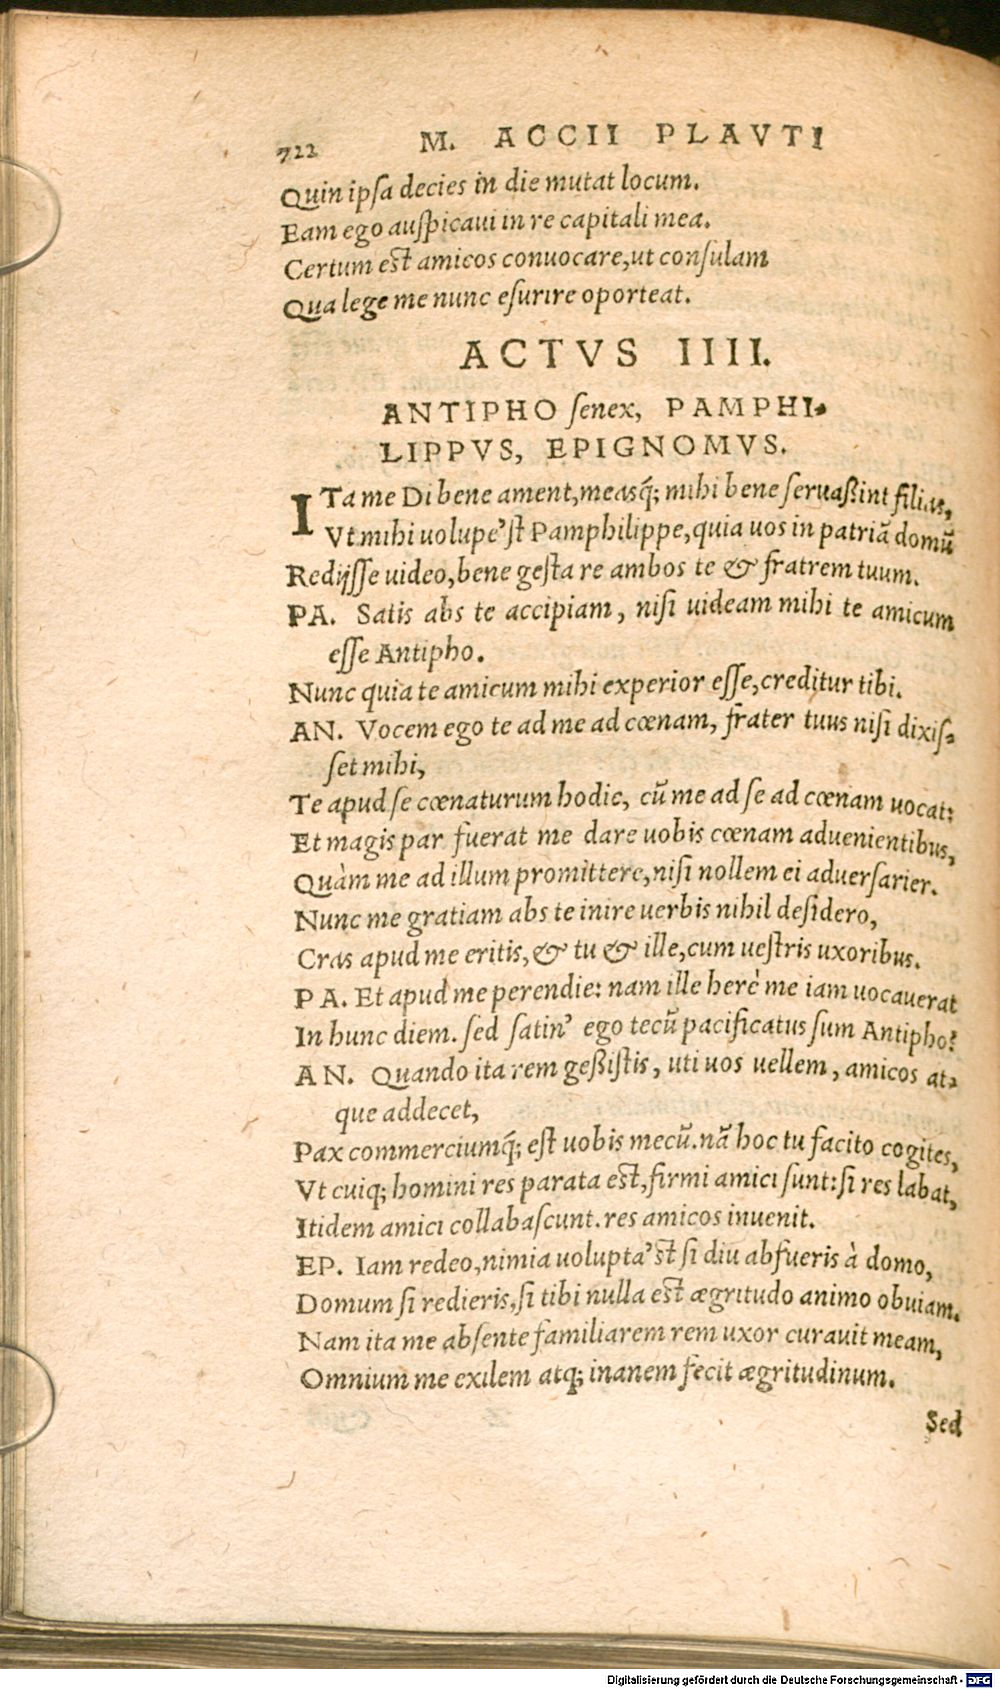 722 M. ACCII PLAVTI
Quin ipſa decies in die mutat locum.
Eam ego auſpicaui in re capitali mea.
Certum eſt amicos conuocare,ut conſulam
Qua lege me nunc eſurire oporteat.
ACTVS IIII.
ANTIPHO ſenex, PAMPHI-
LIPPVS, EPIGNOMVS.
ITa me Di bene ament,measq́; mihi bene ſeruaßint filias,
Vt mihi uolupe'ſt Pamphilippe,quia uos in patriã domũ
Redijſſe uideo,bene geſta re ambos te & fratrem tuum.
PA. Satis abs te accipiam, niſi uideam mihi te amicum
eſſe Antipho.
Nunc quia te amicum mihi experior eſſe,creditur tibi.
AN. Vocem ego te ad me ad cœnam, frater tuus niſi dixiſ-
ſet mihi,
Te apud ſe cœnaturum hodie, cũ me ad ſe ad cœnam uocat:
Et magis par fuerat me dare uobis cœnam aduenientibus,
Quàm me ad illum promittere,niſi nollem ei aduerſarier.
Nunc me gratiam abs te inire uerbis nihil deſidero,
Cras apud me eritis,& tu & ille,cum ueſtris uxoribus.
PA. Et apud me perendie: nam ille herè me iam uocauerat
In hunc diem. ſed ſatin' ego tecũ pacificatus ſum Antipho?
AN. Quando ita rem geßiſtis, uti uos uellem, amicos at-
que addecet,
Pax commerciumq́; eſt uobis mecũ.nã hoc tu facito cogites,
Vt cuiq; homini res parata eſt,firmi amici ſunt:ſi res labat,
Itidem amici collabaſcunt.res amicos inuenit.
EP. Iam redeo,nimia uolupta'ſt ſi diu abfueris à domo,
Domum ſi redieris,ſi tibi nulla eſt ægritudo animo obuiam.
Nam ita me abſente familiarem rem uxor curauit meam,
Omnium me exilem atq; inanem fecit ægritudinum.
Sed
Digitalisierung gefördert durch die Deutsche Forschungsgemeinschaft - DFG